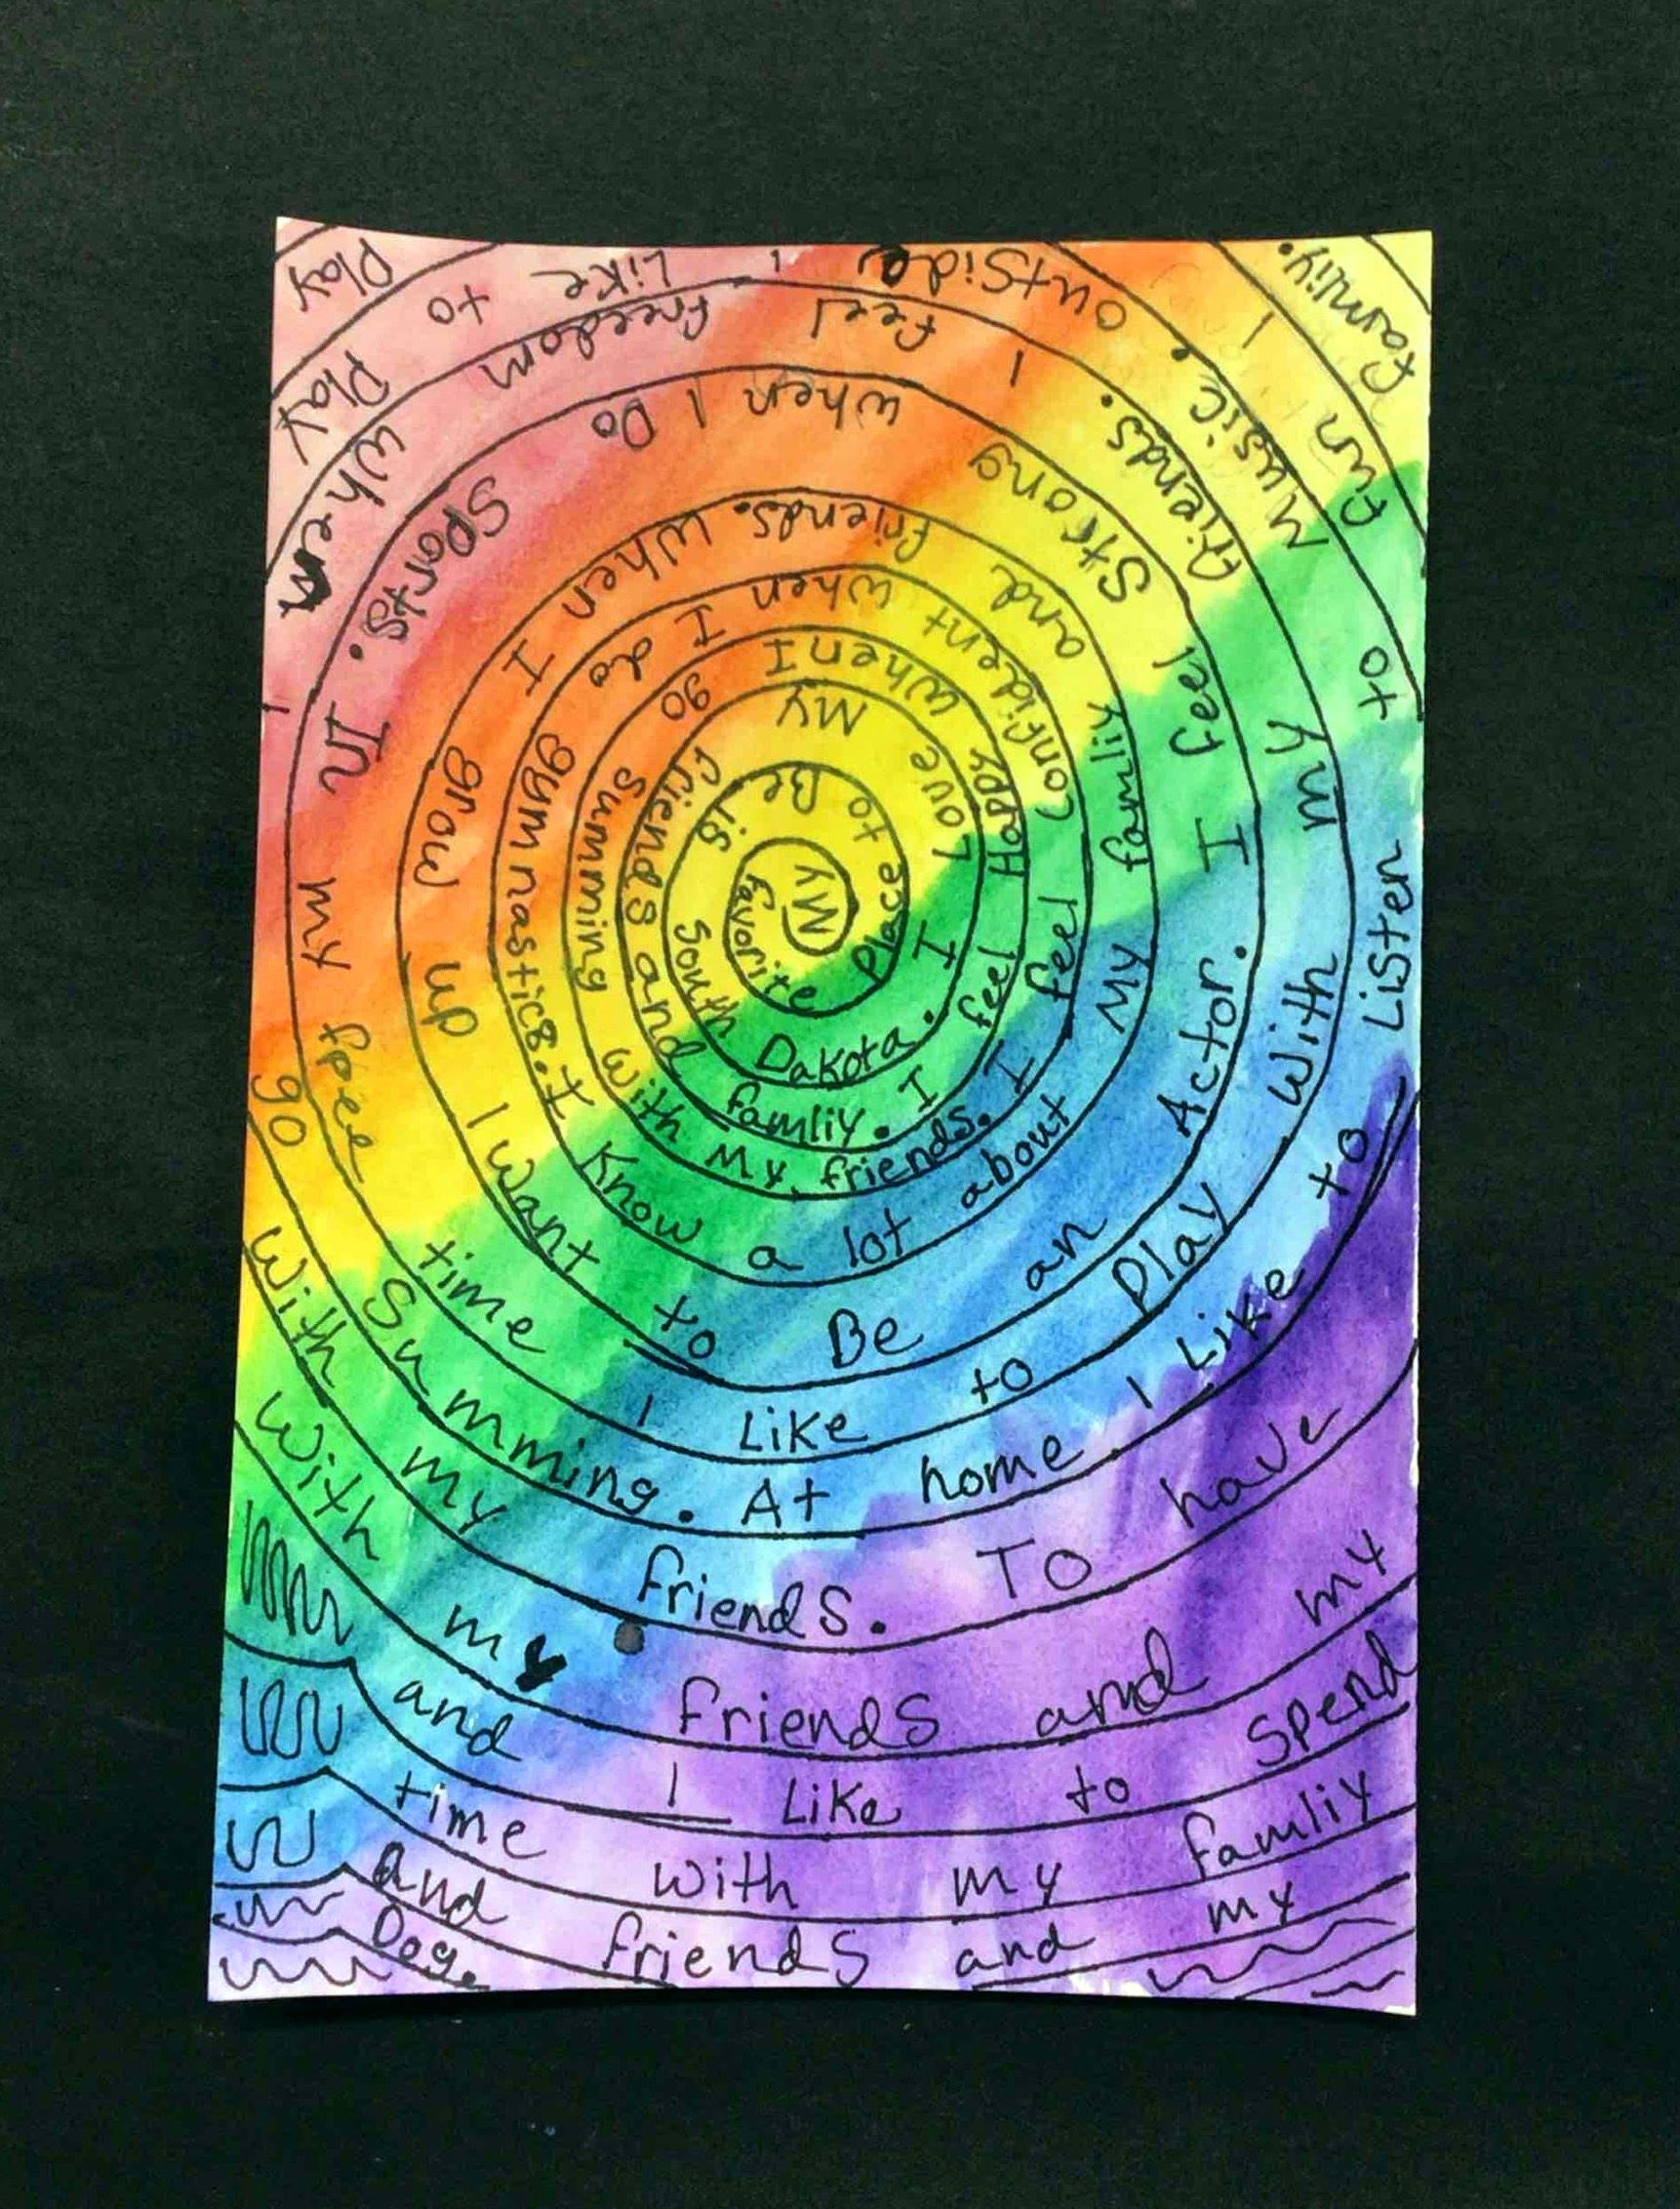 My favorite Place to Be is South Dakota.
I Love My friends and famliy.
I feel Happy when I go Summing with My friends.
I feel Confident when I do gymnastics.
I Know a lot about My famliy and friends.
When I grow up I want to Be an Actor.
I feel Strong when I Do Sports.
In my free time I Like to Play with my friends.
I feel freedom when I go Summing.
At home I Like to Listen to Music.
outside I Like to Play with my friends.
To have fun I Play with my friends and my famliy.
and I Like to Spend time with my famliy and friends and my Dog.